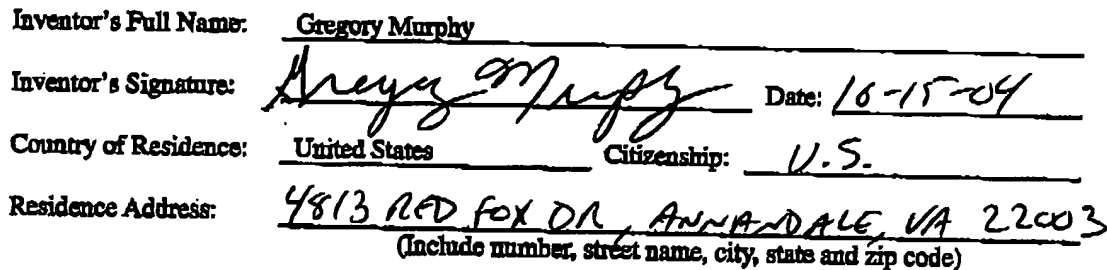 Inventor's Full Name: Gregory Murphy
Inventor's Signature: Gregory Murphy Date: 10-15-04
Country of Residence: United States Citizenship: U.S.
Residence Address: 4813 RED FOX DR, ANNANDALE, VA 22003
(Include number, street name, city, state and zip code)